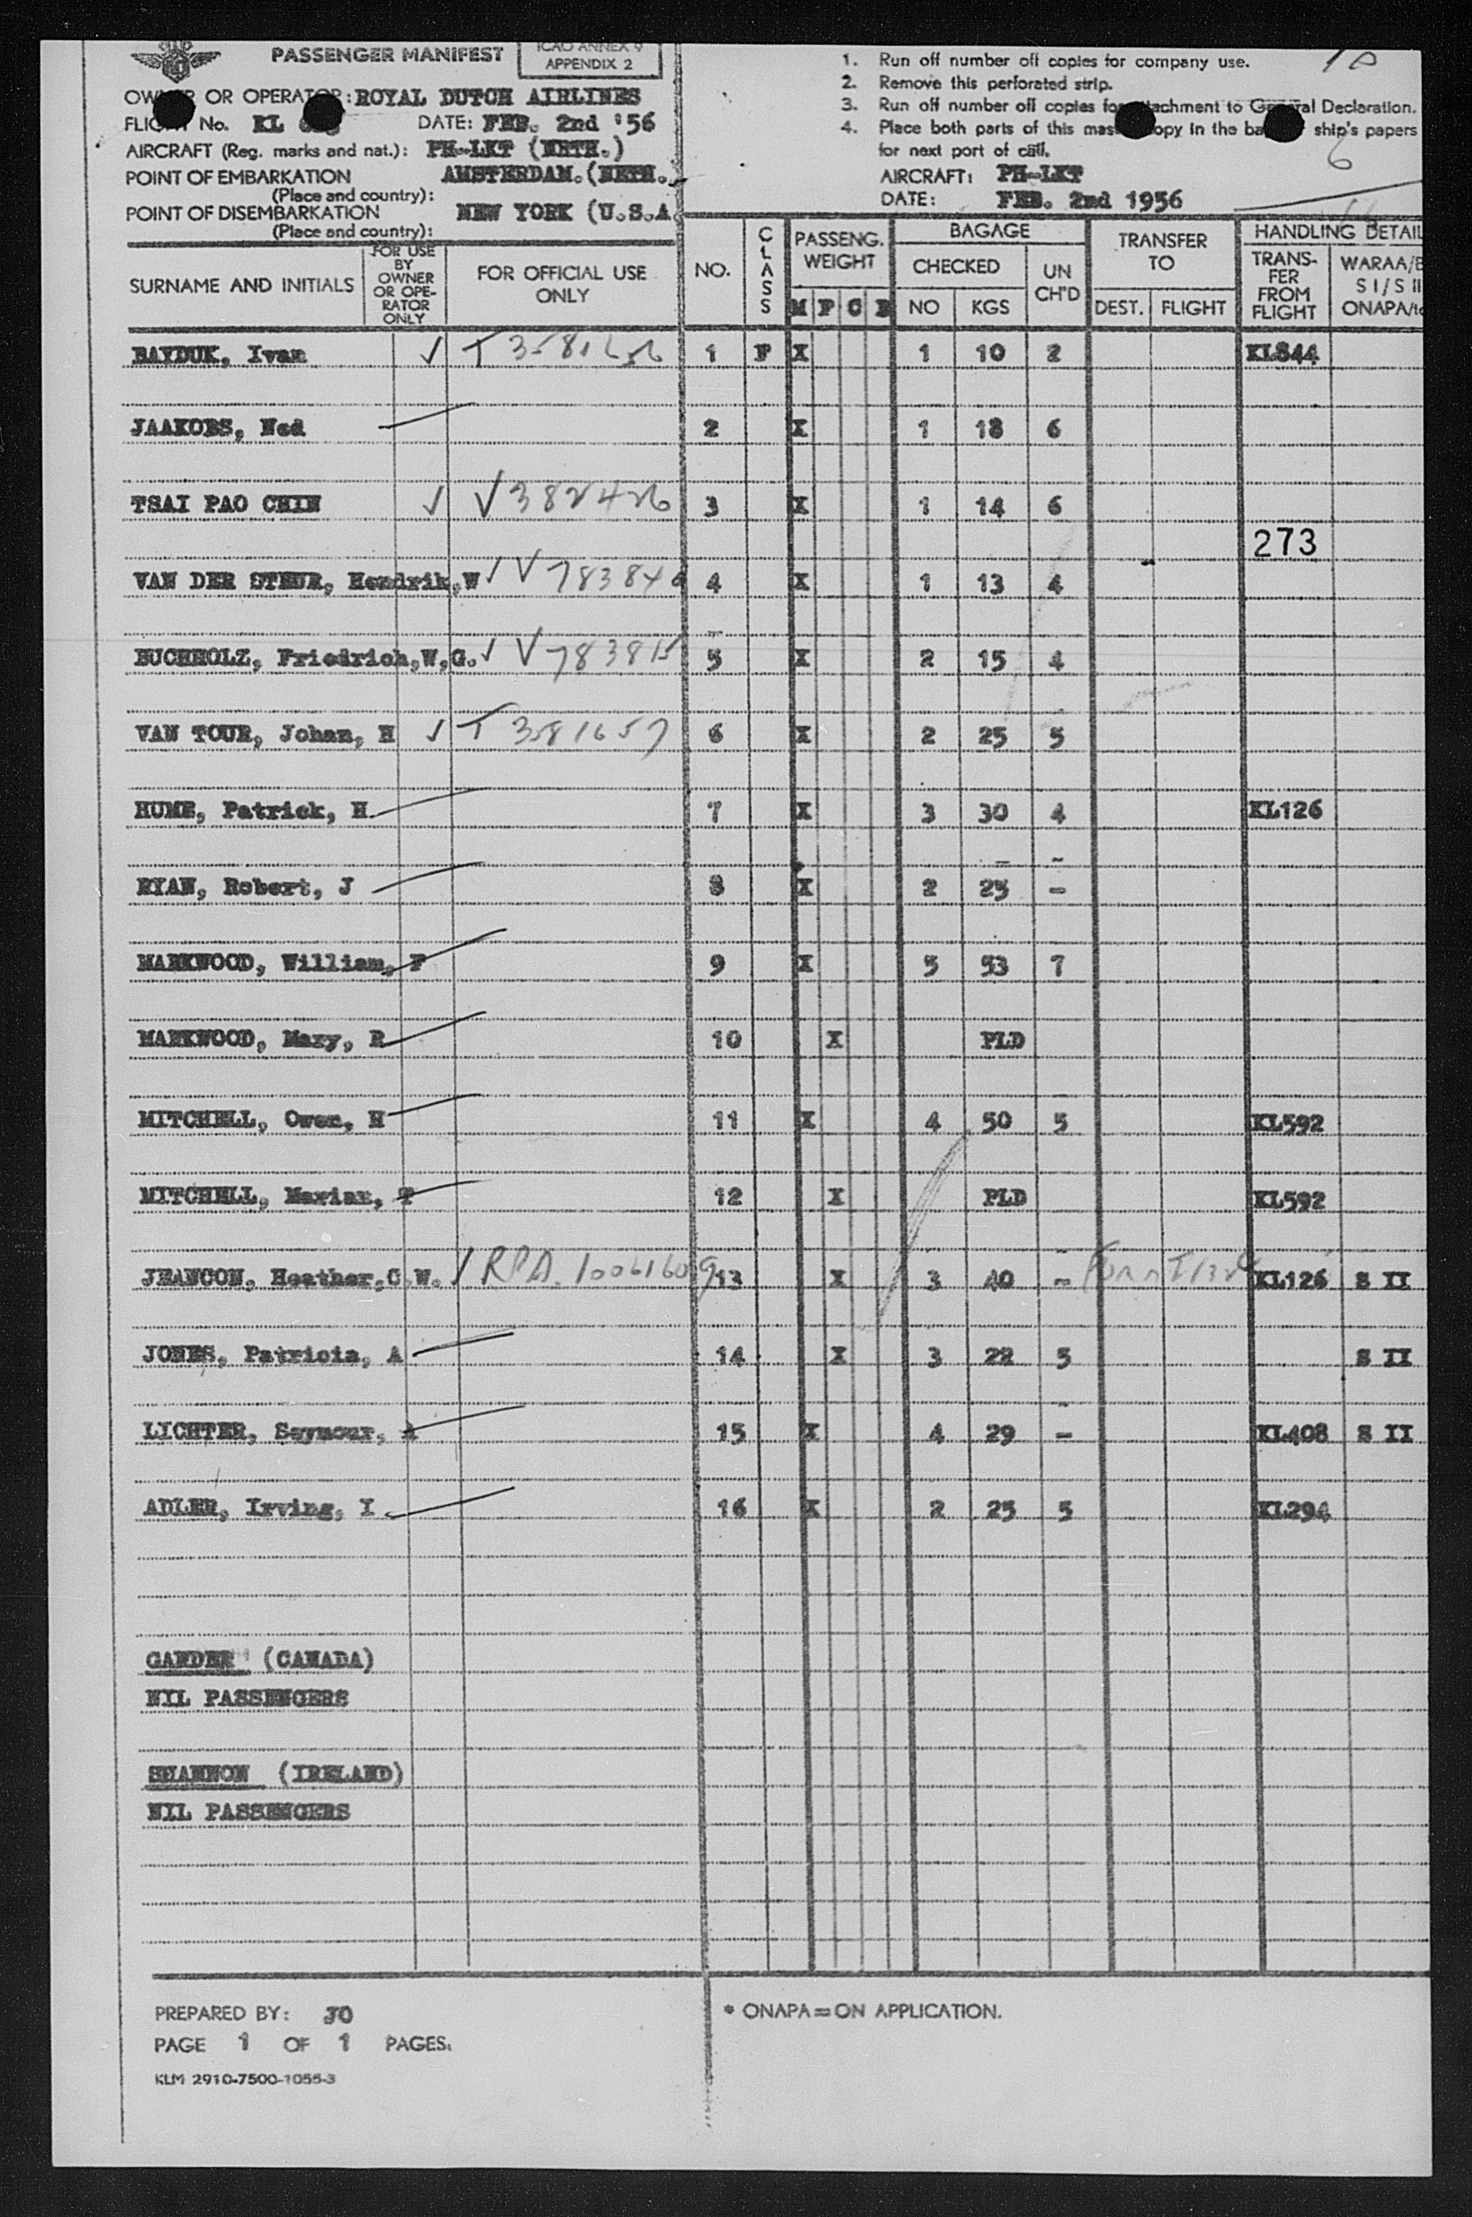 PASSENGER MANIFEST
ICAO ANNEX 9
APPENDIX 2
OWNER OR OPERATOR: ROYAL DUTCH AIRLINES
FLIGHT No. KL
DATE: FEB. 2nd '56
AIRCRAFT (Reg. marks and nat.): PH-LKT (NETH.)
POINT OF EMBARKATION AMSTERDAM.(NETH.
(Place and country):
POINT OF DISEMBARKATION NEW YORK (U.S.A.
(Place and country):
1. Run off number off copies for company use.
2. Remove this perforated strip.
3. Run off number off copies for attachment to General Declaration.
4. Place both parts of this master copy in the back of ship's papers
for next port of call.
6
AIRCRAFT: PH-LKT
DATE: FEB. 2nd 1956
SURNAME AND INITIALS
FOR USE BY OWNER OR OPE-RATOR ONLY
FOR OFFICIAL USE ONLY
NO.
CLASS
PASSENG. WEIGHT
M F C B
BAGAGE
CHECKED
NO KGS
UN CH'D
TRANSFER TO
DEST. FLIGHT
HANDLING DETAIL
TRANS-FER FROM FLIGHT
WARAA/B
S I/S II
ONAPA/
BAYDUK, Ivan √ T 3581656 1 F X 1 10 2 KL844
JAAKOBS, Ned 2 X 1 18 6
TSAI PAO CHIN √ V 382426 3 X 1 14 6
273
VAN DER STEUR, Hendrik,W √ V 783840 4 X 1 13 4
BUCHHOLZ, Friedrich,W,G. √ V 783815 5 X 2 15 4
VAN TOUR, Johan, H √ T 3581657 6 X 2 25 5
HUME, Patrick, H 7 X 3 30 4 KL126
RYAN, Robert, J 8 X 2 25 -
MARKWOOD, William, F 9 X 5 53 7
MARKWOOD, Mary, R 10 X PLD
MITCHELL, Owen, H 11 X 4 50 5 KL592
MITCHELL, Marian, T 12 X PLD KL592
JEANCON, Heather,C.W. √ RPA. 10061609 13 X 3 40 - KL126 S II
JONES, Patricia, A 14 X 3 22 5 S II
LICHTER, Seymour, A 15 X 4 29 - KL408 S II
ADLER, Irving, I 16 X 2 25 5 KL294
GANDER (CANADA)
NIL PASSENGERS
SHANNON (IRELAND)
NIL PASSENGERS
PREPARED BY: JO
PAGE 1 OF 1 PAGES.
KLM 2910-7500-1055-3
* ONAPA=ON APPLICATION.